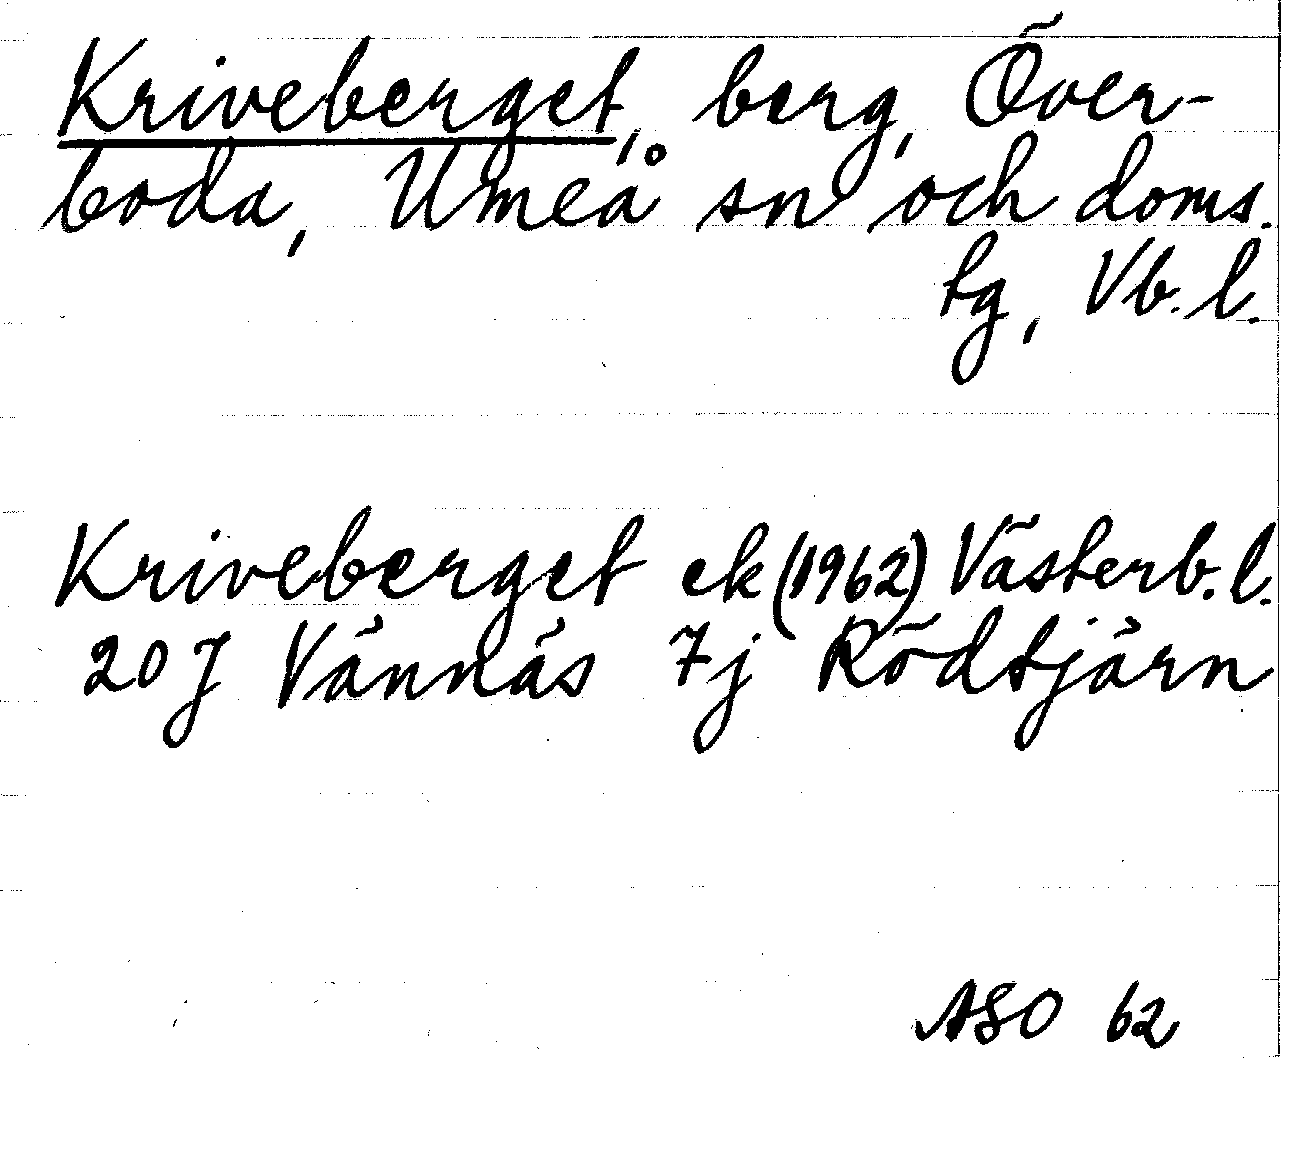 Kriveberget, berg, Över-
boda, Umeå sn och doms.
tg, Vb. l.
Kriveberget ek (1962) Västerb. l.
20 J Vännäs 7j Rödtjärn
ASO 62